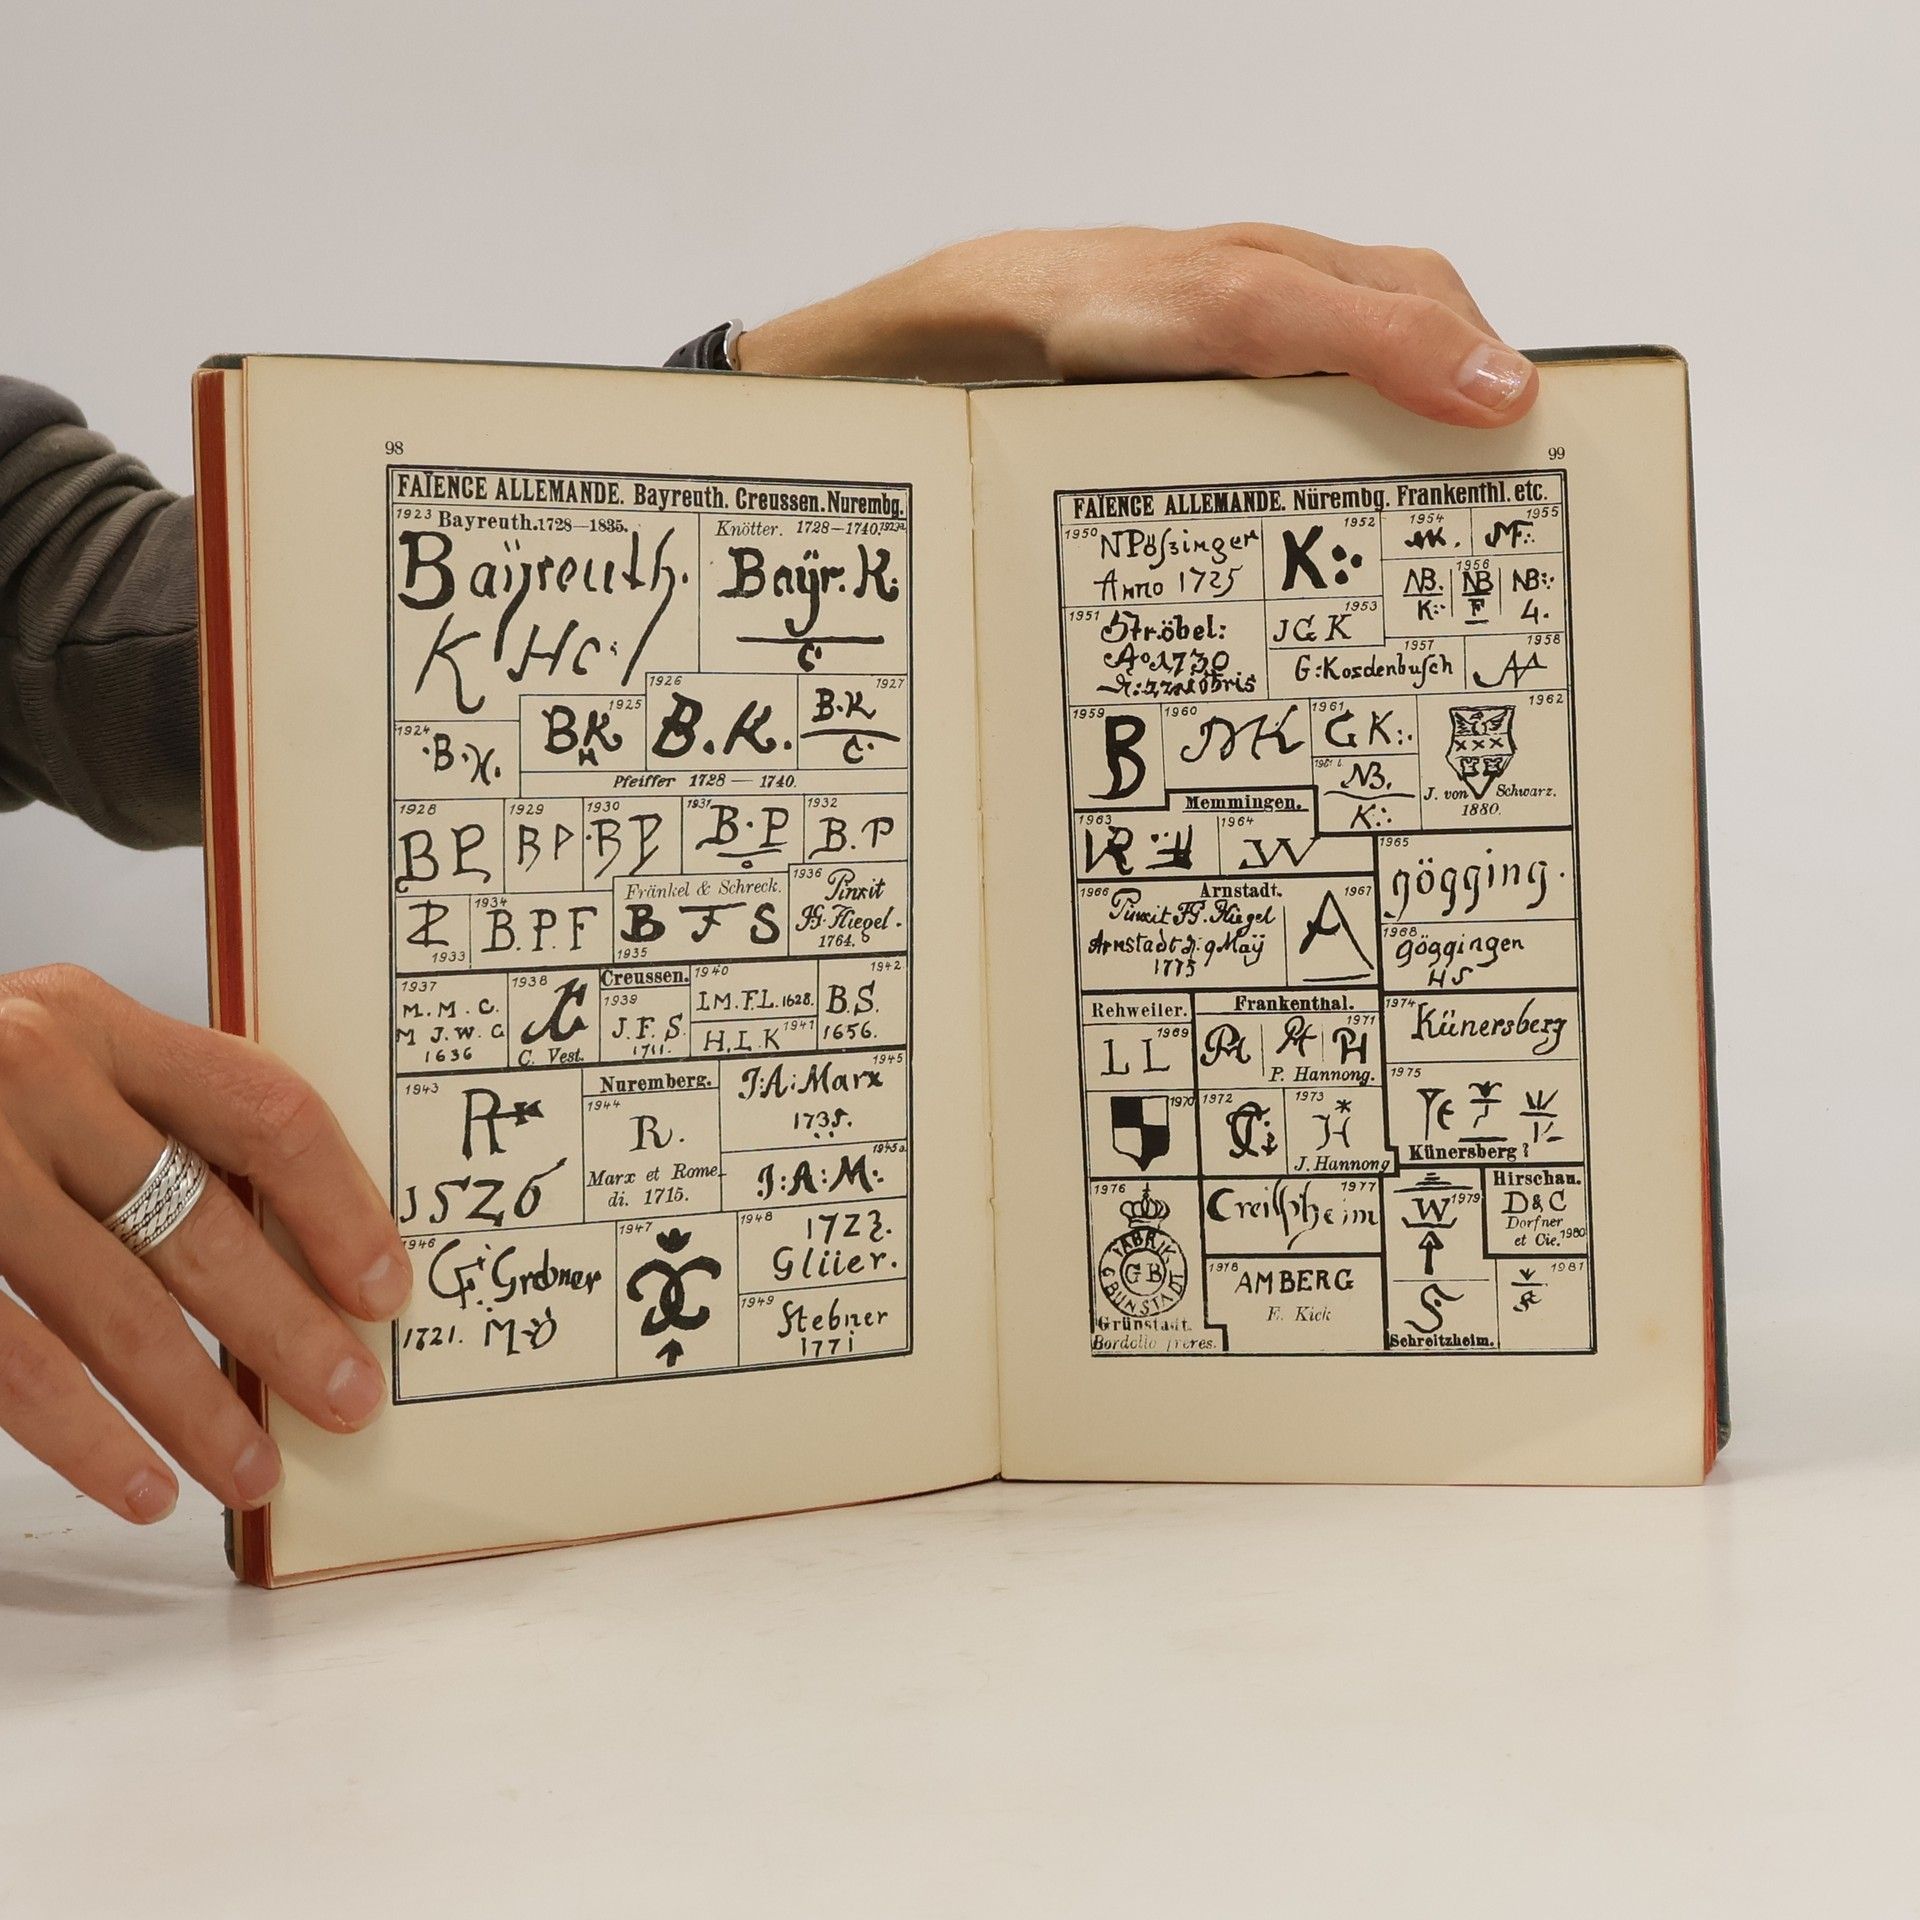 98
FAÏENCE ALLEMANDE. Bayreuth. Creussen. Nurembg.
1923 Bayreuth. 1728—1835.
Baÿreuth.
K Hc
Knötter. 1728—1740. 1923a
Baÿr. K:
C.
1924
B. K.
1925
BK
1926
B. K.
1927
B. K
C.
Pfeiffer 1728 — 1740.
1928
BP
1929
BP
1930
BP
1931
B. P
1932
B. P
1933
1934
B. P. F
Fränkel & Schreck.
B F S
1935
1936
Pinxit
1764.
1937
M. M. C.
M J. W. C
1636
1938
C. Vest.
Creussen.
1939
J. F. S.
1711.
1940
I. M. F. L. 1628.
H. L. K 1941
1942
B. S.
1656.
1943
R
1526
Nuremberg.
1944
R.
Marx et Rome-
di. 1715.
1945
J: A: Marx
1735.
1945a.
J: A: M:
1946
Grebner
1721.
1947
1948
1723.
Glüer.
1949
Stebner
1771
99
FAÏENCE ALLEMANDE. Nürembg. Frankenthl. etc.
1950
NPößinger
Anno 1725
1951
Ströbel:
Ao 1730
1952
K:
1953
JGK
1954
1955
1956
NB. NB NB:
K: F 4.
1957
G: Kosdenbusch
1958
1959
B
1960
NK
1961
GK:.
NB.
K:.
1962
J. von Schwarz.
1880.
Memmingen.
1963
1964
W
1965
gögging.
Arnstadt.
1966
Pinxit
Arnstadt d. 9 Maÿ
1775
1967
A
1968
göggingen
HS
Rehweiler.
1969
L L
1970
Frankenthal.
1971
P. Hannong.
1972
1973
H
J. Hannong
1974
Künersberg
1975
Künersberg?
1976
FABRIK
GB
Grünstadt.
Bordollo frères.
1977
Creilsheim
1978
AMBERG
E. Kick
1979
W
Schreitzheim.
Hirschau.
D & C
Dorfner
et Cie. 1980
1981